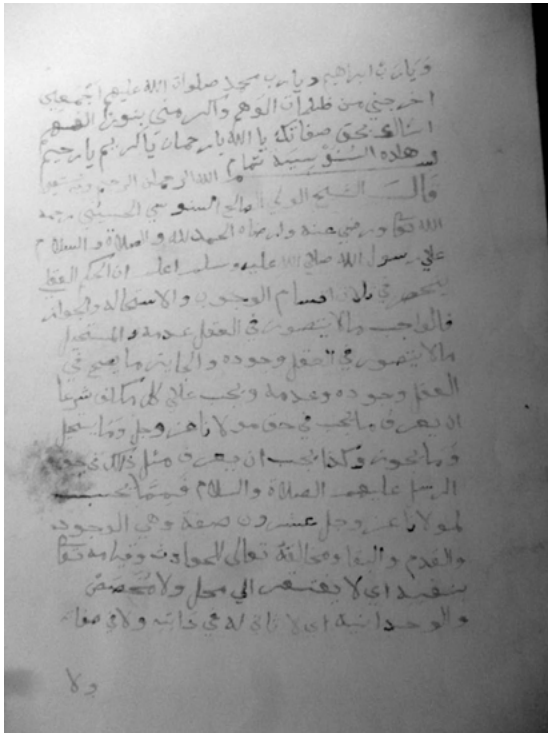 ويارب ابراهيم ويارب محمد صلوات الله عليهم اجمعين
اخرجني من ظلمات الوهم واكرمني بنور الفهم
اسالك بحق صفاتك يا الله يا رحمان يا كريم يا رحيم
وهاذه السنوسية تمام بسم الله الرحمان الرحيم وبه نستعين
قال الشيخ الولي الصالح السنوسي الحسيني رحمه
الله تعا ورضي عنه وارضاه الحمد لله والصلاة والسلام
علي رسول الله صلي الله عليه وسلم اعلم ان الحكم العقلي
ينحصر في ثلاث اقسام الوجوب والاستحالة والجواز
فالواجب مالا يتصور في العقل عدمه والمستحيل
مالا يتصور في العقل وجوده والجايز ما يصح في
العقل وجوده وعدمه ويجب علي كل مكلف شرعا
ان يعرف ما يجب في حق مولانا عز وجل وما يستحيل
وما يجوز وكذا يجب ان يعرف مثل ذالك في حق
الرسل عليهم الصلاة والسلام فمما يجب
لمولانا عز وجل عشرون صفة وهي الوجود
والقدم والبقاء ومخالفته تعالى للحوادث وقيامه تعا
بنفسه اي لا يفتقر الي محل ولا مخصص
والوحدانية اي لا ثاني له في ذاته ولا في صفاته
ولا